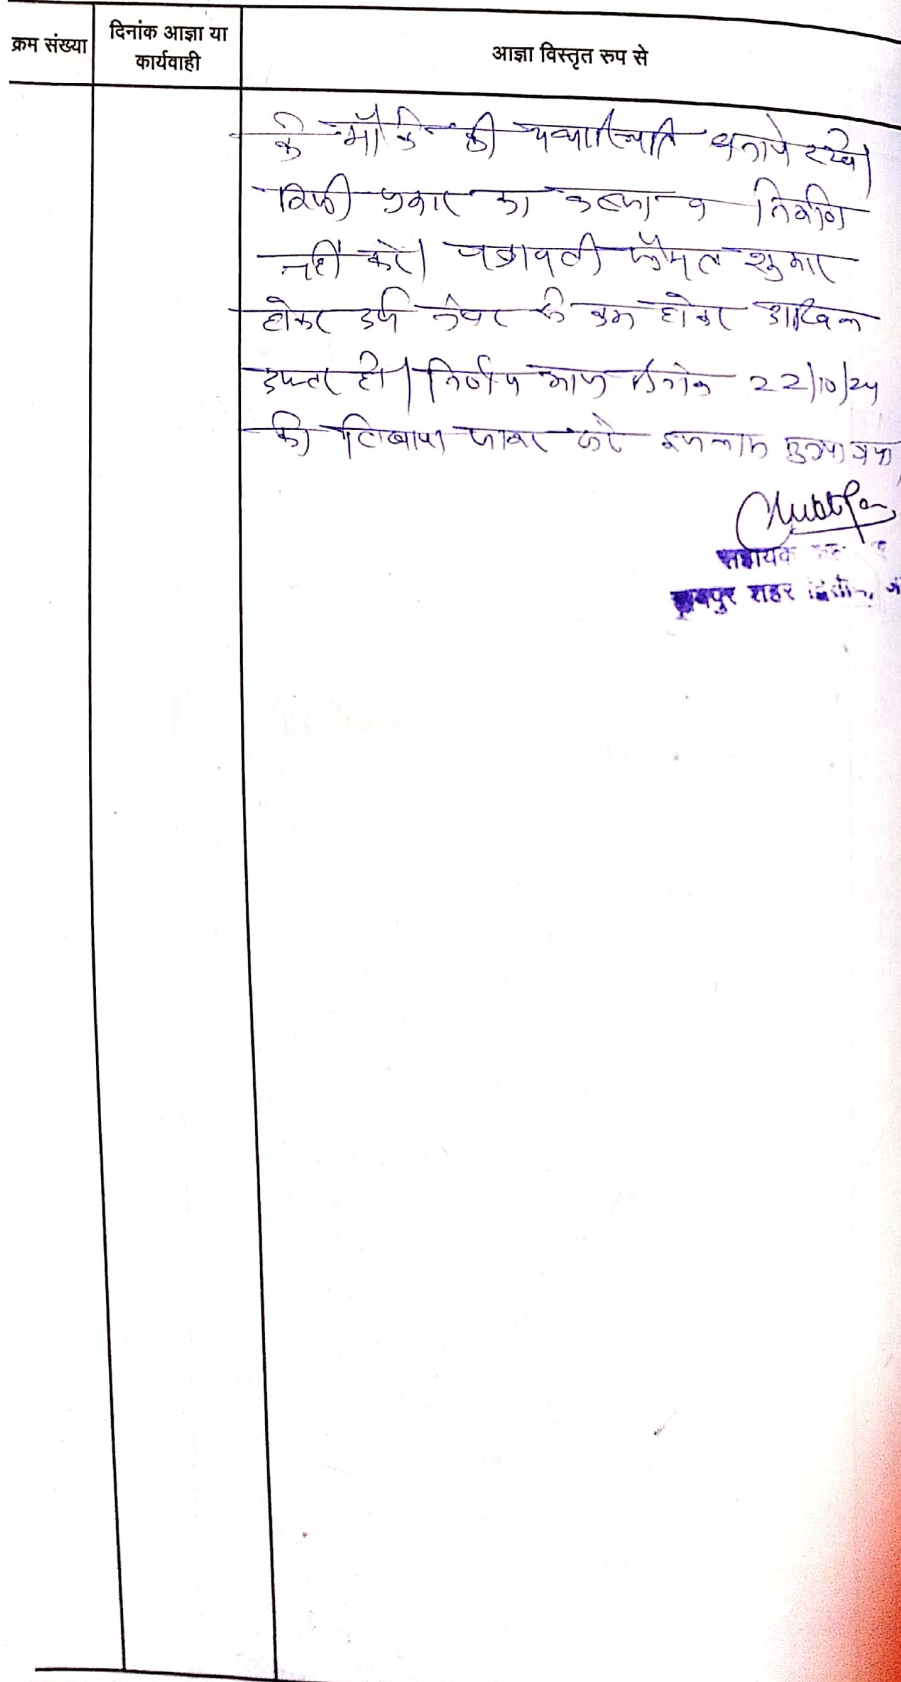 क्रम संख्या
दिनांक आज्ञा या
कार्यवाही
आज्ञा विस्तृत रुप से
के मौके की यथास्थिति बनाये रखे।
किसी प्रकार का कब्जा व निर्माण
नहीं करे। पत्रावली फैसल शुमार
होकर दर्ज नंबर से कम होकर दाखिल
दफ्तर हो। निर्णय आज दिनांक 22/10/24
को लिखाया जाकर खुले इजलास सुनाया गया
सहायक
जयपुर शहर